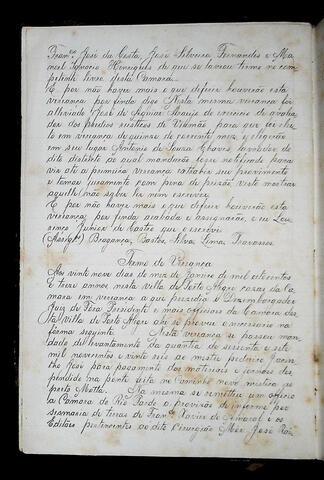 Franco José da Costa, José Silveira Fernandes e Ma-
noel Ignacio Henriques de que se lavrou termo no com-
petente livro desta Camara.
E por não haver mais e que deferir houverão esta
vereança por finda digo Nesta mesma vereança foi
alliviado José de Aguiar Araujo do exercicio de avalia-
dor dos predios rusticos de Viamão para que foi elei-
to em vereança de quinze do corrente mez, e elegerão
em seu lugar Antonio de Souza Chaves lavrador do
dito districto ao qual mandarão fosse notificado para
vir até a primeira vereança extrahir seu provimento
e tomar juramento com pena de prizão, visto mostrar
aquelle não saber ler nem escrever.
E por não haver mais e que deferir houverão esta
vereança por finda acabada e assignarão, e eu Lou-
renço Junior de Castro que o escrevi
(Assigdos) Bragança, Bastos, Silva, Lima, Travassos
Termo de Vereança
Aos vinte nove dias de mez de Janeiro de mil oitocentos
e treze annos nesta villa de Porto Alegre casas da Ca-
mara em vereança a que prezedio o Dezembargador
Juiz de Fóra Prezidente e mais officiaes da Camara des-
ta villa de Porto Alegre ahi se proveu o necessario na
forma seguinte Nesta vereança se passou man-
dado de levantamento da quantia de sessenta e sete
mil novecentos e vinte reis ao mestre pedreiro Jacin-
tho José para pagamento dos materiaes e jornaes des-
pendido na ponte feita no Caminho novo mistica ao
porto Motta. Na mesma se remetteu um officio
a Camara do Rio Pardo a provisão de informe por
sesmaria de terras de Franco Xavier do Amaral e os
Editaes pertencentes ao dito Cirurgião Mór José Car-